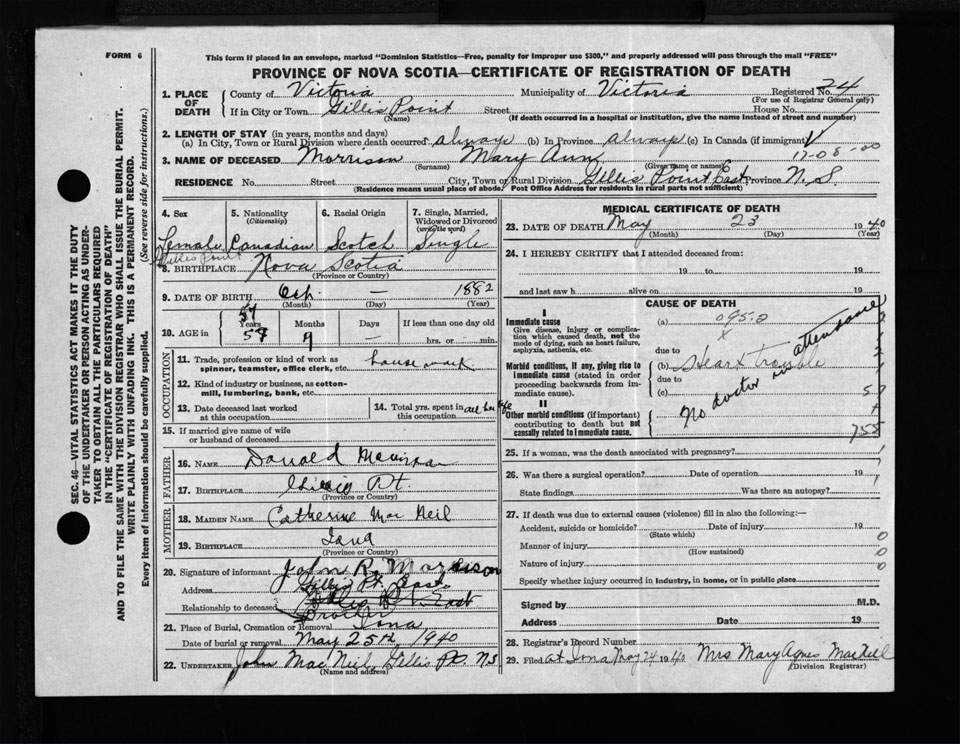 FORM 6
This form if placed in an envelope, marked "Dominion Statistics—Free, penalty for improper use $300," and properly addressed will pass through the mail "FREE"
PROVINCE OF NOVA SCOTIA—CERTIFICATE OF REGISTRATION OF DEATH
1. PLACE OF DEATH County of Victoria Municipality of Victoria Registered No. 24
(For use of Registrar General only)
If in City or Town Gillis Point Street House No.
(Name) (If death occurred in a hospital or institution, give the name instead of street and number)
2. LENGTH OF STAY (in years, months and days)
(a) In City, Town or Rural Division where death occurred always (b) In Province always (c) In Canada (if immigrant)
3. NAME OF DECEASED Morrison Mary Ann
(Surname) (Given name or names)
RESIDENCE No. Street City, Town or Rural Division Gillis Point East Province N.S
(Residence means usual place of abode. Post Office Address for residents in rural parts not sufficient)
SEC. 46—VITAL STATISTICS ACT MAKES IT THE DUTY
OF THE UNDERTAKER OR PERSON ACTING AS UNDER-
TAKER TO OBTAIN ALL THE PARTICULARS REQUIRED
IN THE "CERTIFICATE OF REGISTRATION OF DEATH"
AND TO FILE THE SAME WITH THE DIVISION REGISTRAR WHO SHALL ISSUE THE BURIAL PERMIT.
WRITE PLAINLY WITH UNFADING INK. THIS IS A PERMANENT RECORD.
Every item of information should be carefully supplied. (See reverse side for instructions.)
4. Sex 5. Nationality (Citizenship) 6. Racial Origin 7. Single, Married, Widowed or Divorced (write the word)
Female Canadian Scotch Single
Gillis Point
8. BIRTHPLACE Nova Scotia
(Province or Country)
9. DATE OF BIRTH — 1882
(Month) (Day) (Year)
57
10. AGE in Years Months Days If less than one day old
58 9 — hrs. or min.
OCCUPATION
11. Trade, profession or kind of work as spinner, teamster, office clerk, etc. house work
12. Kind of industry or business, as cotton-mill, lumbering, bank, etc.
13. Date deceased last worked at this occupation
14. Total yrs. spent in this occupation all her life
15. If married give name of wife or husband of deceased
FATHER
16. NAME Donald Morrison
17. BIRTHPLACE Pt.
(Province or Country)
MOTHER
18. MAIDEN NAME Catherine Mac Neil
19. BIRTHPLACE Iona
(Province or Country)
20. Signature of informant John R. Morrison
Address Gillis Pt. East
Relationship to deceased Brother
21. Place of Burial, Cremation or Removal Iona
Date of burial or removal May 25th 1940
22. UNDERTAKER John Mac Neil, Gillis Pt. NS
(Name and address)
MEDICAL CERTIFICATE OF DEATH
23. DATE OF DEATH May 23 1940
(Month) (Day) (Year)
24. I HEREBY CERTIFY that I attended deceased from:
19 to 19
and last saw h alive on 19
CAUSE OF DEATH
I
Immediate cause
Give disease, injury or complication which caused death, not the mode of dying, such as heart failure, asphyxia, asthenia, etc.
(a) 095.2
due to
Morbid conditions, if any, giving rise to immediate cause (stated in order proceeding backwards from immediate cause).
(b) Heart trouble
due to
(c)
No doctor in attendance
II
Other morbid conditions (if important) contributing to death but not causally related to immediate cause.
25. If a woman, was the death associated with pregnancy?
26. Was there a surgical operation? Date of operation 19
State findings Was there an autopsy?
27. If death was due to external causes (violence) fill in also the following:—
Accident, suicide or homicide? Date of injury 19
(State which)
Manner of injury
(How sustained)
Nature of injury
Specify whether injury occurred in industry, in home, or in public place
Signed by M.D.
Address Date 19
28. Registrar's Record Number
29. Filed at Iona May 24 1940 Mrs Mary Agnes MacNeil
(Division Registrar)